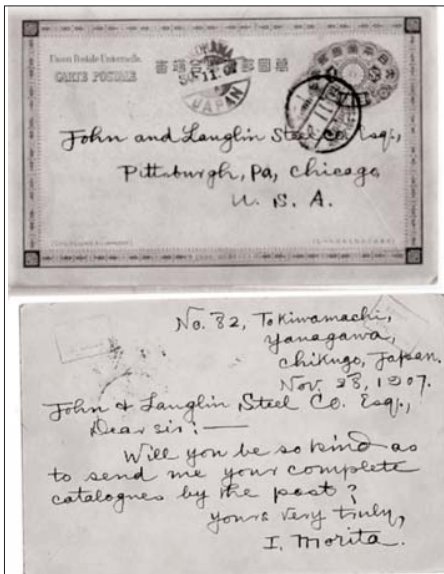 Union Postale Universelle.
CARTE POSTALE
萬國郵便聯合端書
大日本帝國郵便
YOKOHAMA
11
JAPAN
John and Langlin Steel Co. Esq.,
Pittsburgh, Pa, Chicago
U. S. A.
No. 32, Tokiwamachi,
Yanagawa,
Chikugo, Japan.
Nov. 28, 1907.
John & Langlin Steel Co. Esq.,
Dear sir:—
Will you be so kind as
to send me your complete
catalogues by the post?
yours very truly,
I. Morita.